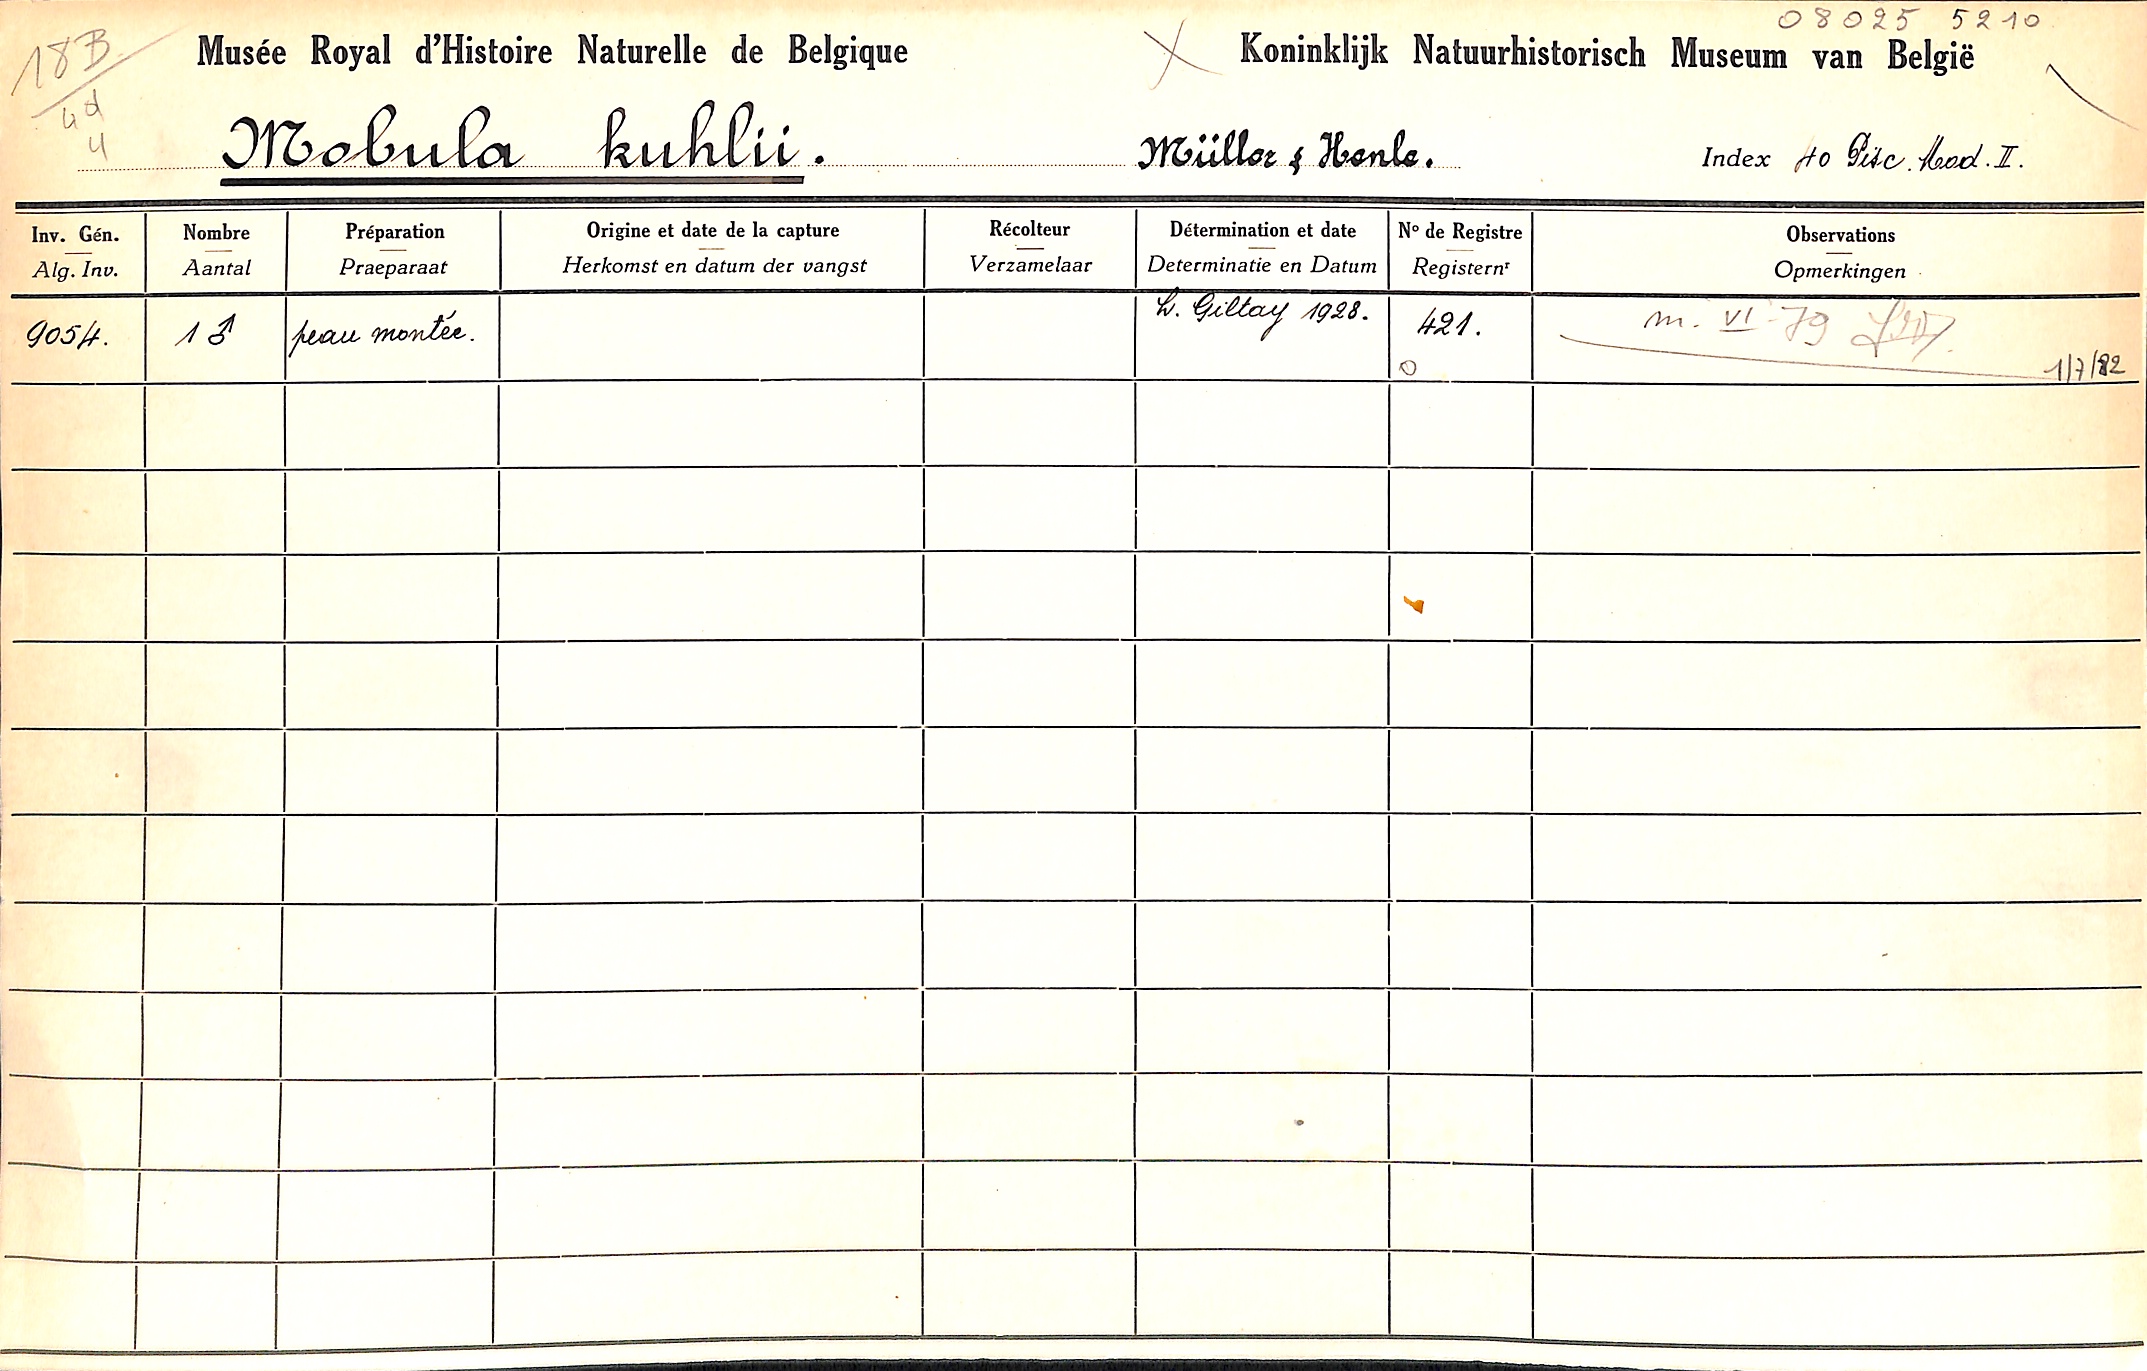 08025 5210
18B
4d
4
Musée Royal d'Histoire Naturelle de Belgique
Koninklijk Natuurhistorisch Museum van België
Mobula kuhlii. Müller & Henle. Index 40 Pisc. Mod. II.
Inv. Gén. Nombre Préparation Origine et date de la capture Récolteur Détermination et date N° de Registre Observations
Alg. Inv. Aantal Praeparaat Herkomst en datum der vangst Verzamelaar Determinatie en Datum Registernr Opmerkingen
9054. 1 ♂ peau montée. L. Giltay 1928. 421. m. VI-79
1/7/82